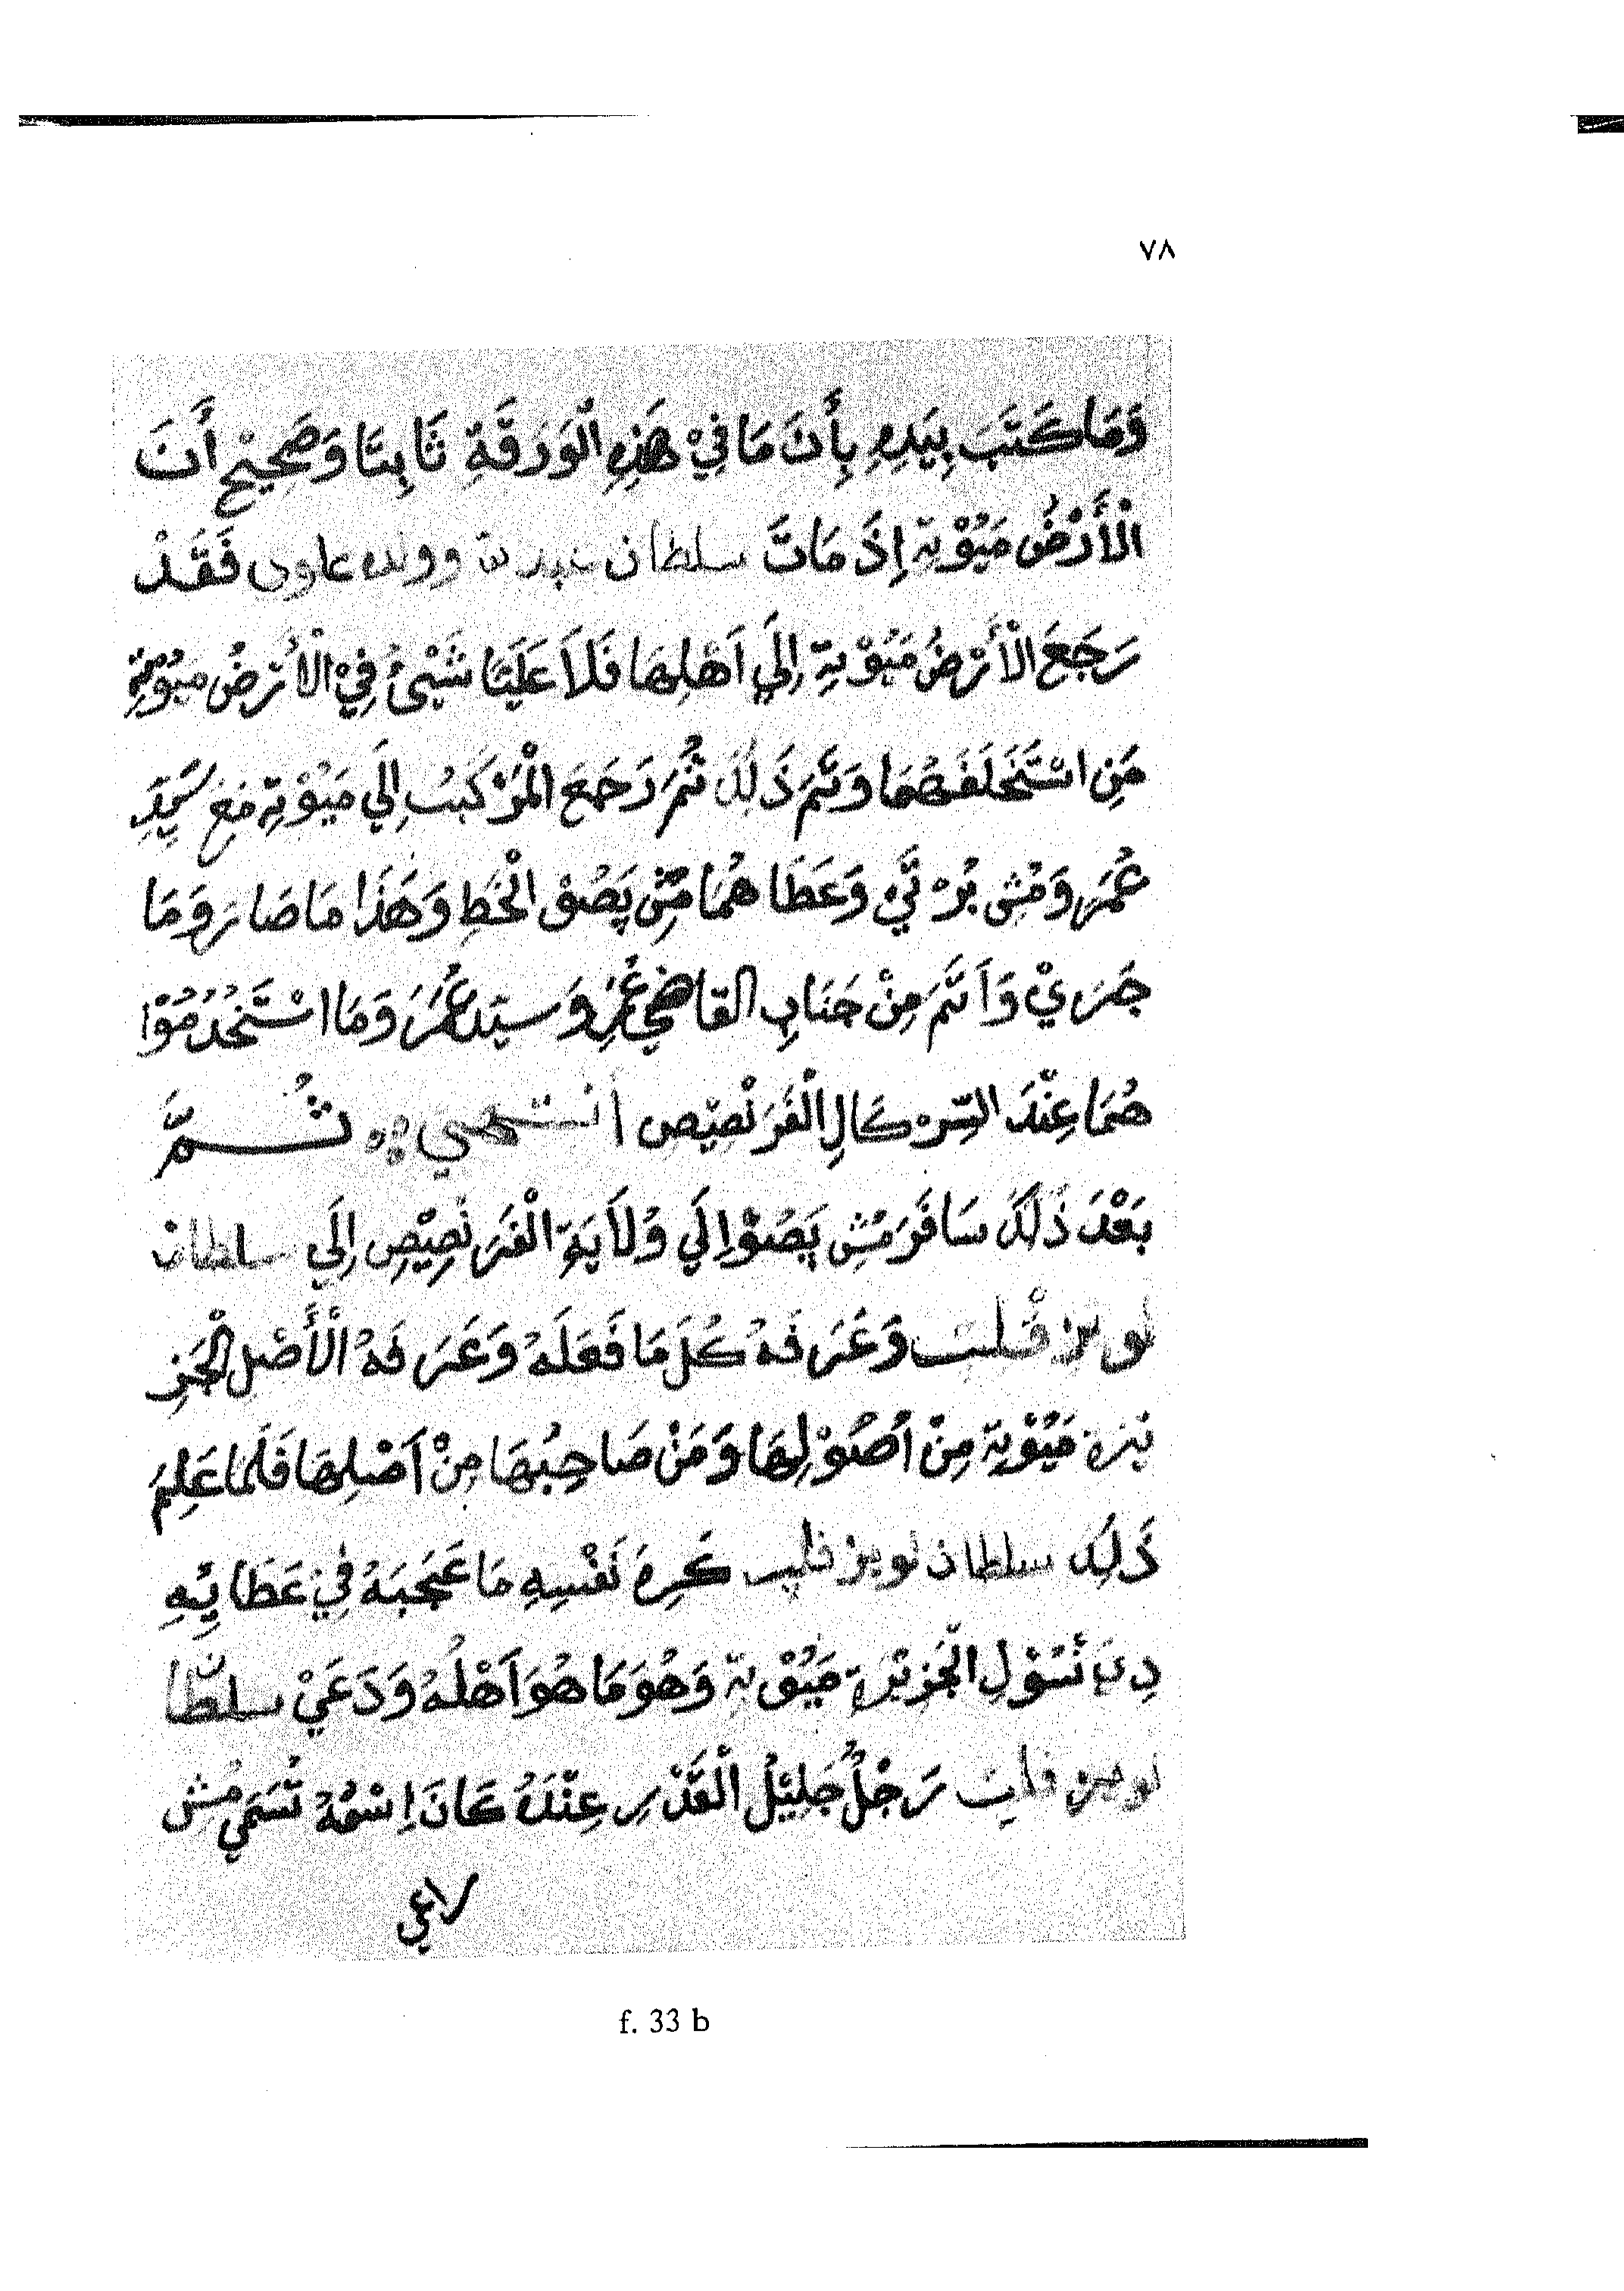 ٧٨
وَمَا كَتَبَ بِيَدِهِ بِأَنَ مَا فِيْ هَذِهِ الْوَرَقَةِ ثَابِتًا وَصَحِيحْ أَنَ
الْأَرْضُ مَيُوْتِة إِذَ مَاتَ سلطان عبدالله وولده علوى فَقَدْ
رَجَعَ الْأَرْضُ مَيُوْتِةِ إِلَي اَهْلِهَا فَلاَ عَلَيْنَا شَيْئُ فِيْ الْأَرْضُ مَيُوْتِةِ
مَنِ اسْتَخْلَفَهُمَا وَتَمَ ذَلِكَ ثُمَ رَجَعَ الْمَرْكَبُ إِلَي مَيُوْتِة مَعَ سَيِّدِ
عُمَرَ وَمُشِ بُرْتَيْ وَعَطَا هُمَا مُشِ پَصُوْ الْخَطِ وَهَذَا مَا صَارَ وَمَا
جَرَيْ وَاَتَمَ مِنْ جَنَابِ القاضِي عُمَرِ وَسيد عُمَرَ وَمَا اسْتَخْدُمُوْا
هُمَا عِنْدَ السِّرْكَالِ الْفَرَنْصِيْص انتهي ثُمَّ
بَعْدَ ذَلِكَ سَافَرَ مُشِ پَصُوْ اِلَي وُلاَيَةِ الْفَرَنْصِيْصِ اِلَي سلطان
لويز فلب وَعَرَفَهُ كُلَ مَا فَعَلَهُ وَعَرَفَهُ الْأَصْلِ الْجَزِ
يْرَة مَيُوْتِة مِنْ اُصُوْلِهَا وَمَنْ صَاحِبُهَا مِنْ اَصْلِهَا فَلَمَا عَلِمَ
ذَلِكَ سلطان لويز فلب كَرِهَ نَفْسِهِ مَا عَجَبَهُ فِيْ عَطَائِهِ
الْجَزِيْرَة مَيُوْتِة وَهُوَ مَا هُوَ اَهْلُهُ وَدَعَيْ سلطا
لويز فلب رَجُلُ جَلِيْلُ الْقَدْرِ عِنْدَهُ كَانَ اِسْمُهُ تُسَمَي مُشِ
f. 33 b